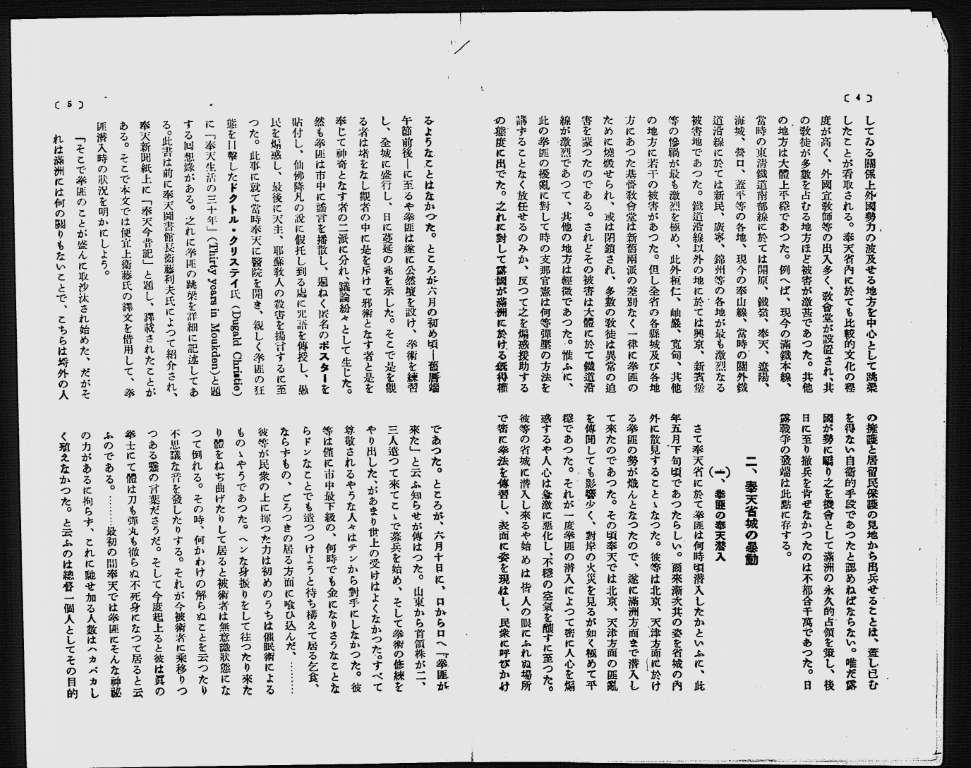 〔4〕
してゐる關係上外國勢力の波及せる地方を中心として跳梁
したことが看取される。奉天省內に於ても比較的文化の程
度が高く、外國宣教師等の出入多く、教會堂が設置され、其
の敎徒が多數を占むる地方ほど被害が激甚であつた。其他
の地方は大體上不穩であつた。例へば、現今の滿鐵本線、
當時の東淸鐵道南部線に於ては開原、鐵嶺、奉天、遼陽、
海城、營口、蓋平等の各地、現今の奉山線、當時の關外鐵
道沿線に於ては新民、廣寧、錦州等の各地が最も激烈なる
被害地であつた。鐵道沿線以外の地に於ては興京、新賓堡
等の慘禍が最も激烈を極め、此外桓仁、岫巖、寬甸、其他
の地方に若干の被害があつた。但し全省の各縣城及び各地
方にあつた基督敎會堂は新舊兩派の差別なく一律に拳匪の
ために燒燬せられ、或は閉鎖され、多數の敎徒は異常の迫
害を蒙つたのである。されどその被害は大體に於て鐵道沿
線が激烈であつて、其他の地方は輕微であつた。惟ふに、
此の拳匪の擾亂に對して時の支那官憲は何等彈壓の方法を
講ずることなく放任せるのみか、反つて之を煽惑援助する
の態度に出でた。之れに對して露國が滿洲に於ける旣得權
の擁護と居留民保護の見地から出兵せるとは、蓋し已む
を得ない自衞的手段であつたと認めねばならない。唯だ露
國が勢に驅り之を機會として滿洲の永久的占領を策し、後
日に至り撤兵を肯ぜなかつたのは不都合千萬であつた。日
露戰爭の發端は此點に存する。
二、奉天省城の暴動
(一)、拳匪の奉天潜入
さて奉天省に於て拳匪は何時頃潜入したかといふに、此
年五月下旬頃であつたらしい。爾來漸次其の姿を省城の內
外に散見することゝなつた。彼等は北京、天津方面に於け
る拳匪の勢が熾んとなつたので、遂に滿洲方面まで潜入し
て來たのであつた。その頃奉天では北京、天津方面の匪亂
を傳聞しても影響少く、對岸の火災を見るが如く極めて平
穩であつた。それが一度拳匪の潜入によつて密に人心を煽
惑するや人心は急激に惡化し、不穩の空氣を釀すに至つた。
彼等の省城に潜入し來るや始めは皆人の眼にふれぬ場所
で密に拳法を傳習し、表面に姿を現はし、民衆に呼びかけ
〔5〕
るようなことはなかつた。ところが六月の初め頃―舊曆端
午節前後―に至るや拳匪は遂に公然壇を設け、拳術を練習
し、全城に盛行し、日に蔓延の兆を示した。そこで是を觀
る者は堵をなし觀者の中に是を斥けて邪術となす者と是を
奉じて神奇となす者の二派に分れ、議論紛々として生じた。
然も拳匪は市中に謠言を播散し、遍ねく匿名のポスターを
貼付し、仙佛降凡の說に假托し到る處に咒語を傳授し、愚
民を煽惑し、最後に天主、耶蘇敎人の殺害を揚言するに至
つた。此事に就て當時奉天に醫院を開き、親しく拳匪の狂
態を目擊したドクトル・クリステイ氏 (Dugald Christie)
に「奉天生活の三十年」(Thirty years in Moukden)と題
する回想錄がある。之れに拳匪の跳梁を詳細に記述してあ
る。此書は前に奉天圖書館長衞藤利夫氏によつて紹介され、
奉天新聞紙上に「奉天今昔記」と題し、譯載されたことが
ある。そこで本文では便宜上衞藤氏の譯文を借用して、拳
匪潜入時の狀況を明かにしよう。
「そこで拳匪のことが盛んに取沙汰され始めた、だがそ
れは滿洲には何の關りもないことで、こちらは埓外の人
であつた。ところが、六月十日に、口から口へ『拳匪が
來た』と云ふ知らせが傳はつた。山東から首領株が二、
三人遣つて來てこゝで募兵を始め、そして拳術の修練を
やり出した、があまり世上の受けはよくなかつた。すべて
尊敬されるやうな人々はテンから對手にしなかつた。彼
等は僅に市中最下級の、何時でも金になりさうなことな
らドンなことでも遣つつけようと待ち構えて居る乞食、
ならずもの、ごろつきの居る方面に喰ひ込んだ、………
彼等が民衆の上に揮つた力は初めのうちは催眠術による
ものゝやうであつた。ヘンな身振りをして往つたり來た
り體をねぢ曲げたりして居ると被術者は無意識狀態にな
つて倒れる。その時、何かわけの解らぬことを云つたり
不思議な音を發したりする。それが今被術者に乘移りつ
つある靈の言葉ださうだ。そして今度起上ると彼は眞の
拳士にて體は刀も彈丸も徹らぬ不死身になつて居ると云
ふのである。………最初の間奉天では拳匪にそんな神祕
の力があるに拘らず、これに馳せ加る人數はハカバカし
く殖えなかつた。と云ふのは總督一個人としてその目的